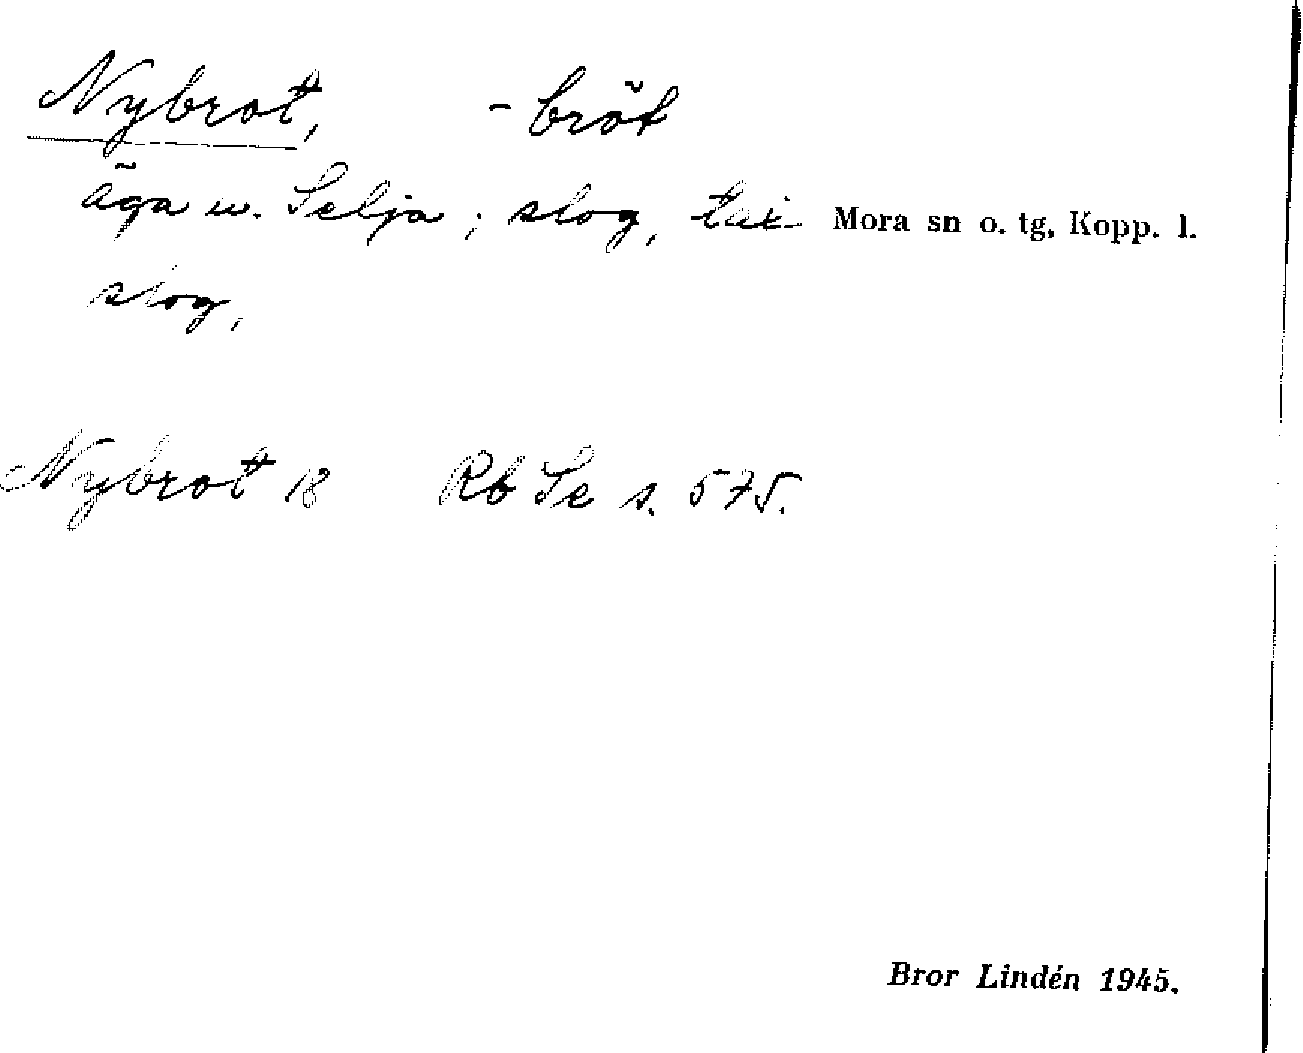 Nybrot, -bröt
äga w. Selja; slog, Mora sn o. tg, Kopp. l.
slog,
Nybrot 18 Rb Se s. 575.
Bror Lindén 1945.